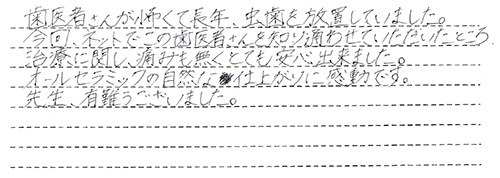 歯医者さんが怖くて長年、虫歯を放置していました。
今回、ネットでこの歯医者さんを知り通わせていただいたところ、
治療に関し、痛みも無くとても安心出来ました。
オールセラミックの自然な仕上がりに感動です。
先生、有難うございました。